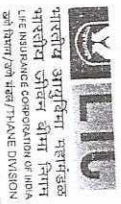 LIC
भारतीय आयुर्विमा महामंडळ
भारतीय जीवन बीमा निगम
LIFE INSURANCE CORPORATION OF INDIA
ठाणे विभाग/ठाणे मंडल/THANE DIVISION